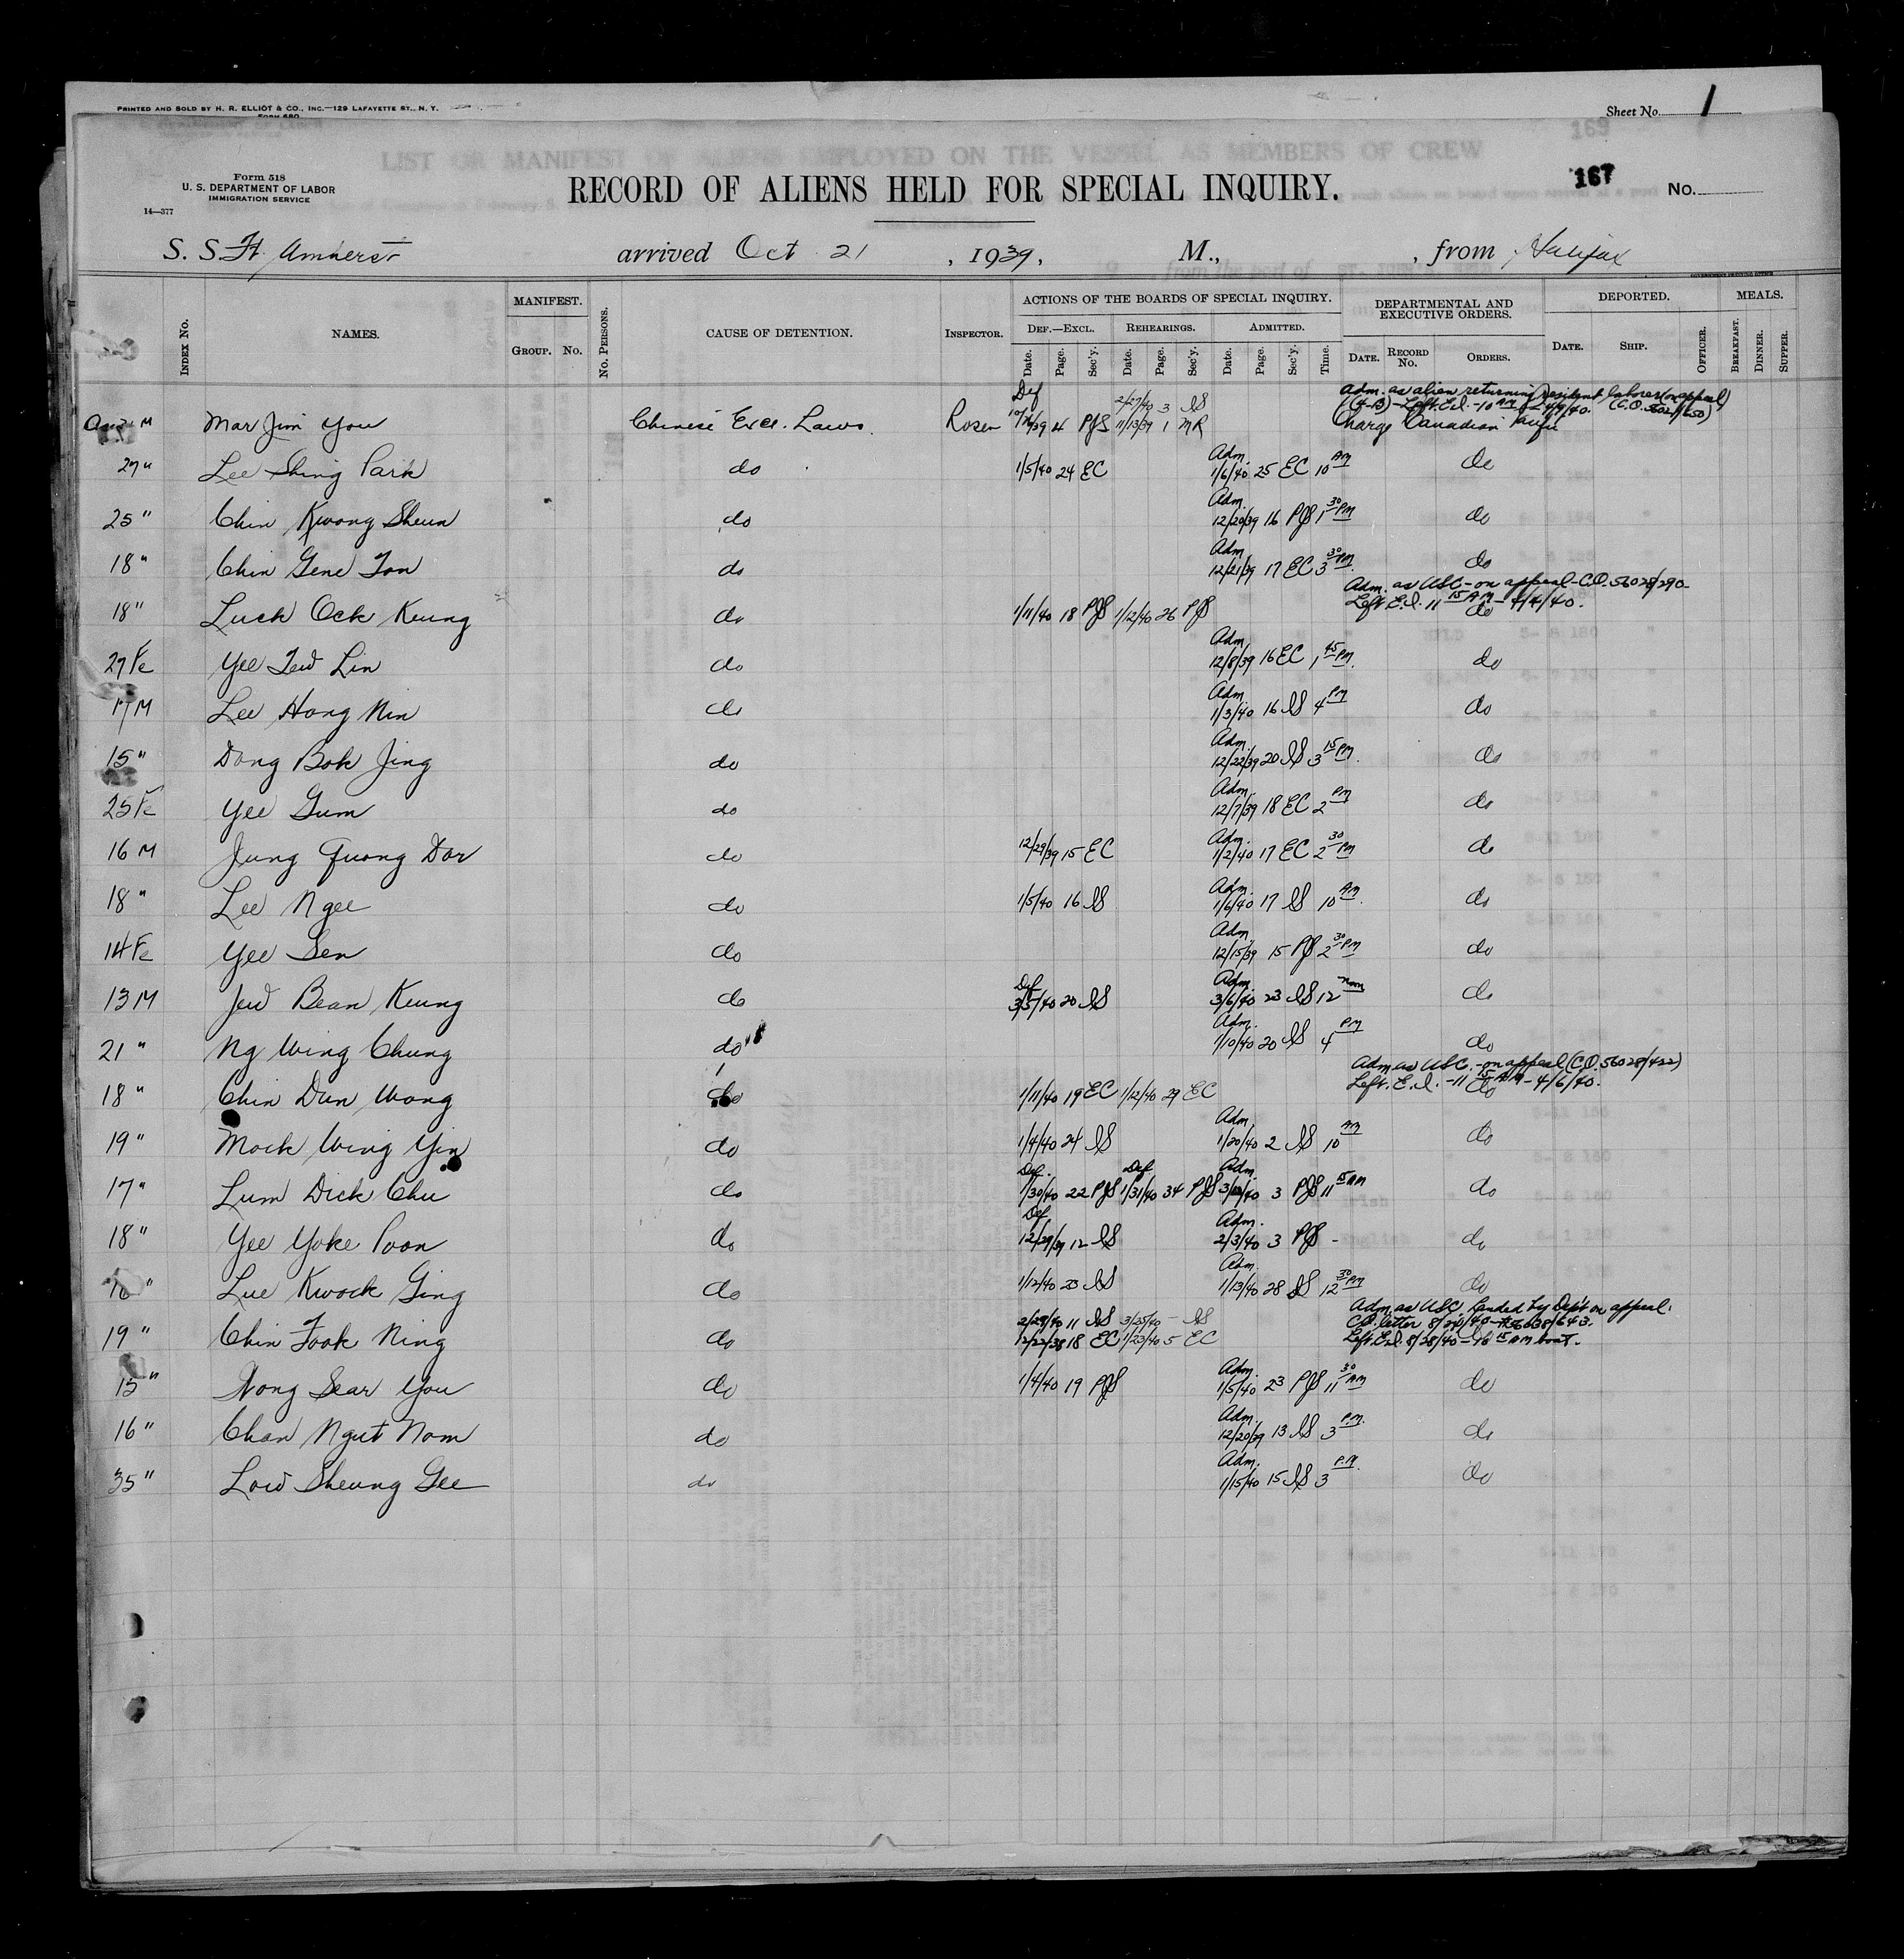 PRINTED AND SOLD BY H. R. ELLIOT & CO., INC.—129 LAFAYETTE ST., N. Y.
FORM 680
Sheet No. 1
LIST OR MANIFEST OF ALIENS EMPLOYED ON THE VESSEL AS MEMBERS OF CREW
Form 518
U. S. DEPARTMENT OF LABOR
IMMIGRATION SERVICE
14—377
RECORD OF ALIENS HELD FOR SPECIAL INQUIRY.
167 No.
S. S. Ft Amherst arrived Oct 21, 1939, M., , from Halifax
INDEX No. NAMES. MANIFEST. GROUP. No. No. PERSONS. CAUSE OF DETENTION. INSPECTOR. ACTIONS OF THE BOARDS OF SPECIAL INQUIRY. DEPARTMENTAL AND EXECUTIVE ORDERS. DEPORTED. MEALS.
DEF.—EXCL. REHEARINGS. ADMITTED.
Date. Page. Sec'y. Date. Page. Sec'y. Date. Page. Sec'y. Time. DATE. RECORD No. ORDERS. DATE. SHIP. OFFICER. BREAKFAST. DINNER. SUPPER.
Def 2/27/40 3 IS Adm. as alien returning resident laborer (on appeal)
M Mar Jim You Chinese Excl. Laws. Rosen 4 PJS 11/13/39 1 MR Charge Canadian Pacific
27 " Lee Shing Park do 1/5/40 24 EC Adm. 1/6/40 25 EC 10 AM do
25 " Chin Kwong Sheun do Adm. 12/20/39 16 PJS 1 30 PM do
18 " Chin Gene Fon do Adm. 12/21/39 17 EC 3 30 PM do
Adm. as USC - on appeal - C.O. 56028/290
18 " Luck Ock Keung do 1/11/40 18 PJS 1/12/40 26 PJS Left E.I. 11 15 AM - 4/4/40. do
27 Fe Yee Tew Lin do Adm. 12/8/39 16 EC 1 45 PM do
17 M Lee Hong Nin do Adm. 1/3/40 16 IS 4 PM do
15 " Dong Bok Jing do Adm. 12/22/39 20 IS 3 15 PM. do
25 Fe Yee Gum do Adm. 12/7/39 18 EC 2 PM do
16 M Jung Quong Dor do 12/29/39 15 EC Adm. 1/2/40 17 EC 2 30 PM do
18 " Lee Ngee do 1/5/40 16 IS Adm. 1/6/40 17 IS 10 AM. do
14 Fe Yee Sen do Adm. 12/15/39 15 PJS 2 30 PM do
13 M Jew Bean Keung do Def 3/5/40 20 IS Adm. 3/6/40 23 IS 12 noon do
21 " Ng Wing Chung do Adm. 1/10/40 20 IS 4 PM do
Adm. as USC. - on appeal (C.O. 56028/422)
18 " Chin Dun Wong do 1/11/40 19 EC 1/12/40 29 EC Left. E.I. - 11 15 AM - 4/6/40. do
19 " Mock Wing Yin do 1/4/40 24 IS Adm 1/20/40 2 IS 10 AM do
17 " Lum Dick Chu do Def. 1/30/40 22 PJS Def 1/31/40 34 PJS Adm. 3 PJS 11 15 AM do
18 " Yee Yoke Poon do Def 12/29/39 12 IS Adm. 2/3/40 3 PJS - do
" Lue Kwock Ging do 1/12/40 23 IS Adm. 1/13/40 28 IS 12 30 PM do
2/29/40 11 IS 3/25/40 - IS Adm. as USC. Landed by Dep't on appeal.
19 " Chin Fook Ning do 12/22/38 18 EC 1/23/40 5 EC Left E.I. 8/28/40 - 15 AM boat.
15 " Nong Sear You do 1/4/40 19 PJS Adm. 1/5/40 23 PJS 11 30 AM do
16 " Chan Ngut Nom do Adm. 12/20/39 13 IS 3 P.M. do
35 " Low Sheung Gee do Adm. 1/15/40 15 IS 3 P.M. do